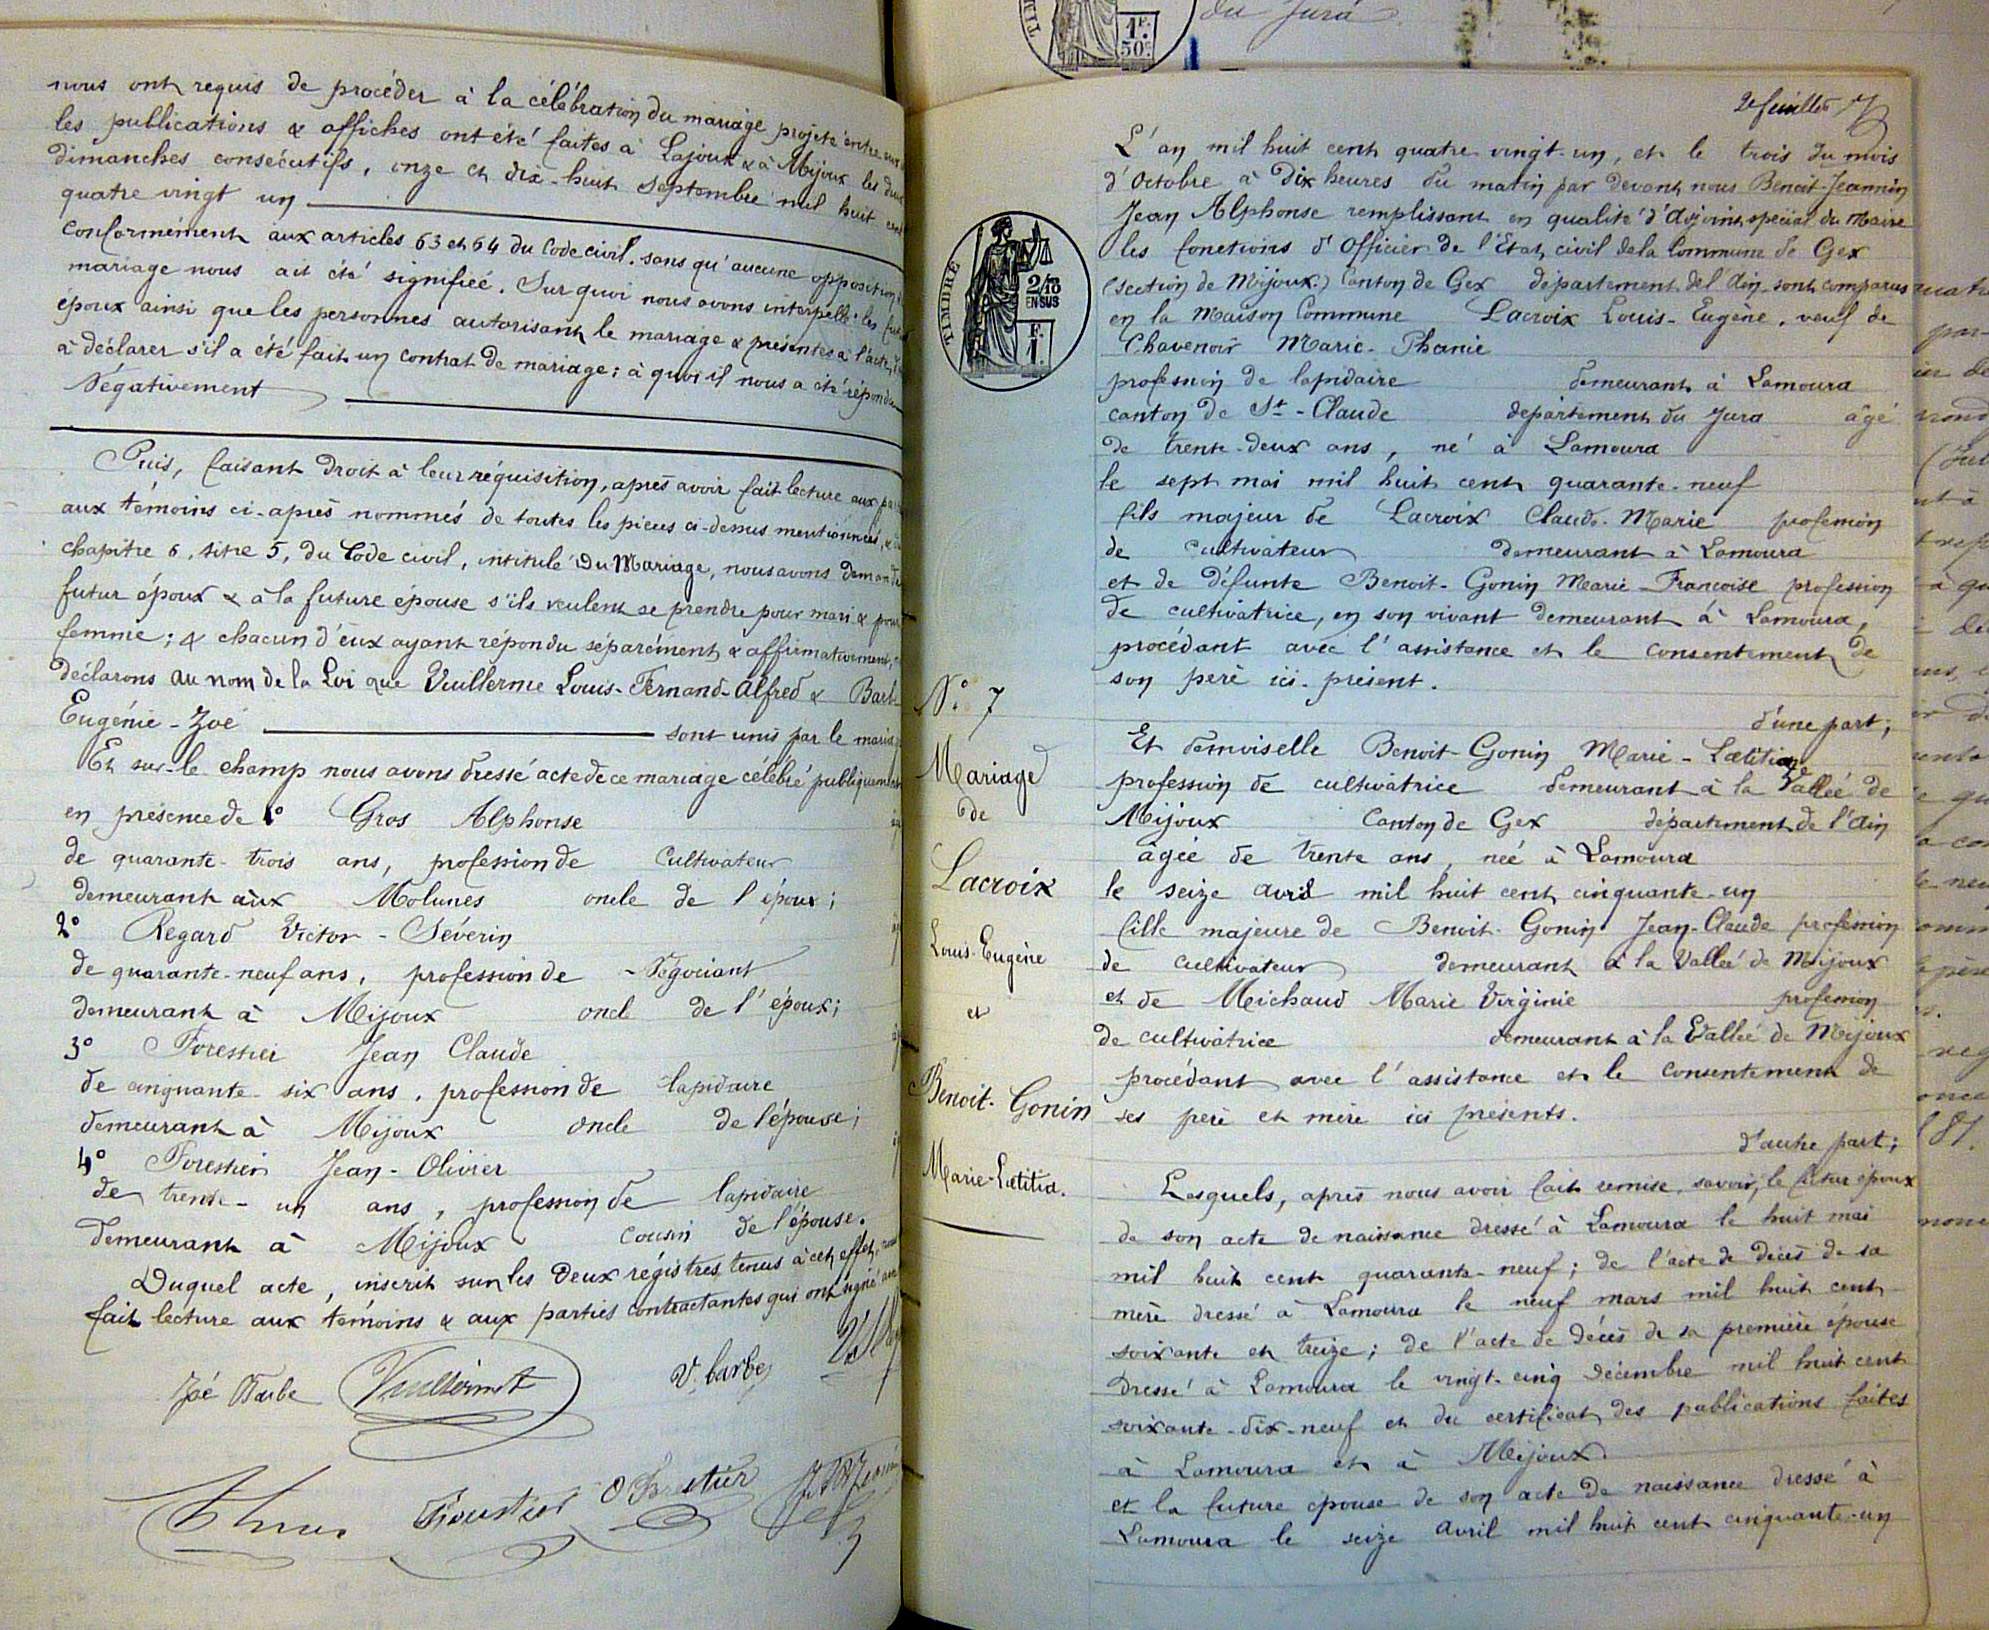 nous ont requis de procéder à la célébration du mariage projeté entre eux
les publications & affiches ont été faites à Lajoux & à Mijoux les deux
dimanches consécutifs, onze et dix-huit Septembre mil huit cent
quatre vingt un
Conformément aux articles 63 et 64 du Code civil. sans qu'aucune opposition
mariage nous ait été signifiée. Sur quoi nous avons interpellé les futurs
époux ainsi que les personnes autorisant le mariage & présentes à l'acte,
à déclarer s'il a été fait un contrat de mariage; à quoi il nous a été répondu
Négativement
Puis, faisant droit à leur réquisition, après avoir fait lecture aux
aux témoins ci-après nommés de toutes les pièces ci-dessus mentionnées, &
chapitre 6, titre 5, du Code civil, intitulé Du Mariage, nous avons demandé
futur époux & à la future épouse s'ils veulent se prendre pour mari & pour
femme; & chacun d'eux ayant répondu séparément & affirmativement,
déclarons au nom de la Loi que Vuillerme Louis-Fernand-Alfred & Barbe
Eugénie-Zoé sont unis par le mariage
Et sur-le champ nous avons dressé acte de ce mariage célébré publiquement
en présence de 1° Gros Alphonse
de quarante-trois ans, profession de Cultivateur
demeurant aux Molunes oncle de l'époux;
2° Regard Victor-Séverin
de quarante-neuf ans, profession de Négociant
demeurant à Mijoux oncle de l'époux;
3° Forestier Jean Claude
de cinquante six ans, profession de lapidaire
demeurant à Mijoux oncle de l'épouse;
4° Forestier Jean-Olivier
de trente-un ans, profession de lapidaire
demeurant à Mijoux cousin de l'épouse.
Duquel acte, inscrit sur les deux régistres tenus à cet effet,
fait lecture aux témoins & aux parties contractantes qui ont signé avec
Zoé Barbe V. barbe
O Forestier
du Jura
1F. 50c.
2e feuillet
TIMBRE
2/10 EN SUS
F. 1.
L'an mil huit cent quatre vingt-un, et le trois du mois
d'Octobre à Dix heures du matin par devant nous Benoit-Jeannin
Jean Alphonse remplissant en qualité d'Adjoint spécial du Maire
les fonctions d'Officier de l'Etat civil de la Commune de Gex
(section de Mijoux.) Canton de Gex département de l'Ain sont comparus
en la Maison Commune Lacroix Louis-Eugène, veuf de
Chavenoir Marie-Phanie
profession de lapidaire demeurant à Lamoura
canton de St-Claude département du Jura âgé
de trente-deux ans, né à Lamoura
le sept mai mil huit cent quarante-neuf
fils majeur de Lacroix Claude-Marie profession
de cultivateur demeurant à Lamoura
et de défunte Benoit-Gonin Marie-Françoise profession
de cultivatrice, en son vivant demeurant à Lamoura,
procédant avec l'assistance et le consentement de
son père ici-présent.
d'une part;
Et demoiselle Benoit-Gonin Marie-Lætitia
profession de cultivatrice demeurant à la Vallée de
Mijoux Canton de Gex département de l'Ain
âgée de trente ans, née à Lamoura
le seize avril mil huit cent cinquante-un
fille majeure de Benoit-Gonin Jean-Claude profession
de cultivateur demeurant à la Vallée de Mijoux
et de Michaud Marie Virginie profession
de cultivatrice demeurant à la Vallée de Mijoux
procédant avec l'assistance et le consentement de
ses père et mère ici présents.
d'autre part;
Lesquels, après nous avoir fait remise, savoir, le futur époux
de son acte de naissance dressé à Lamoura le huit mai
mil huit cent quarante-neuf; de l'acte de décès de sa
mère dressé à Lamoura le neuf mars mil huit cent
soixante et treize; de l'acte de décès de sa première épouse
dressé à Lamoura le vingt-cinq décembre mil huit cent
soixante-dix-neuf et du certificat des publications faites
à Lamoura et à Mijoux.
et la future épouse de son acte de naissance dressé à
Lamoura le seize avril mil huit cent cinquante-un
N° 7
Mariage
de
Lacroix
Louis-Eugène
et
Benoit-Gonin
Marie-Lætitia.